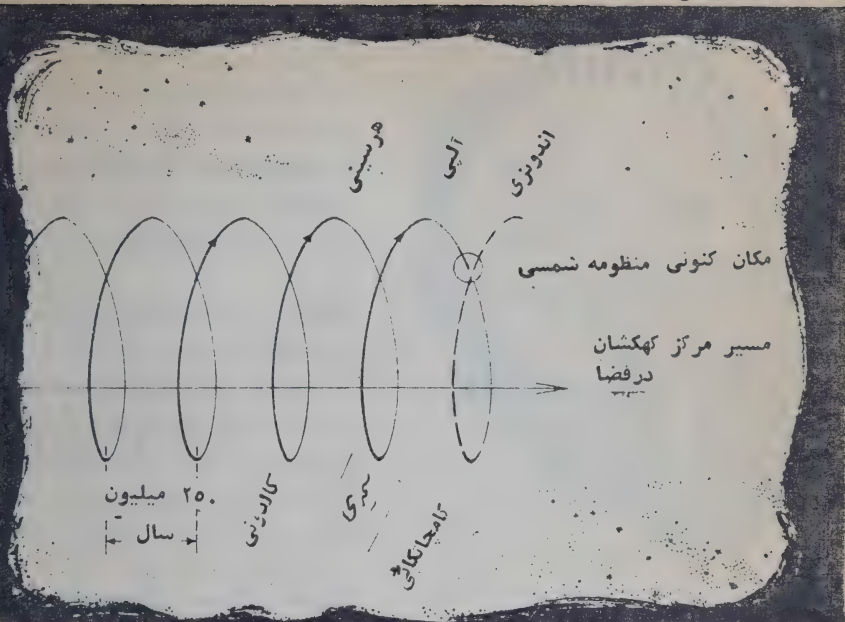 هرسینی
آلپی
اندونزی
مکان کنونی منظومه شمسی
مسیر مرکز کهکشان
درفضا
۲۵۰ میلیون
سال
کالدونی
کامچاتکائی